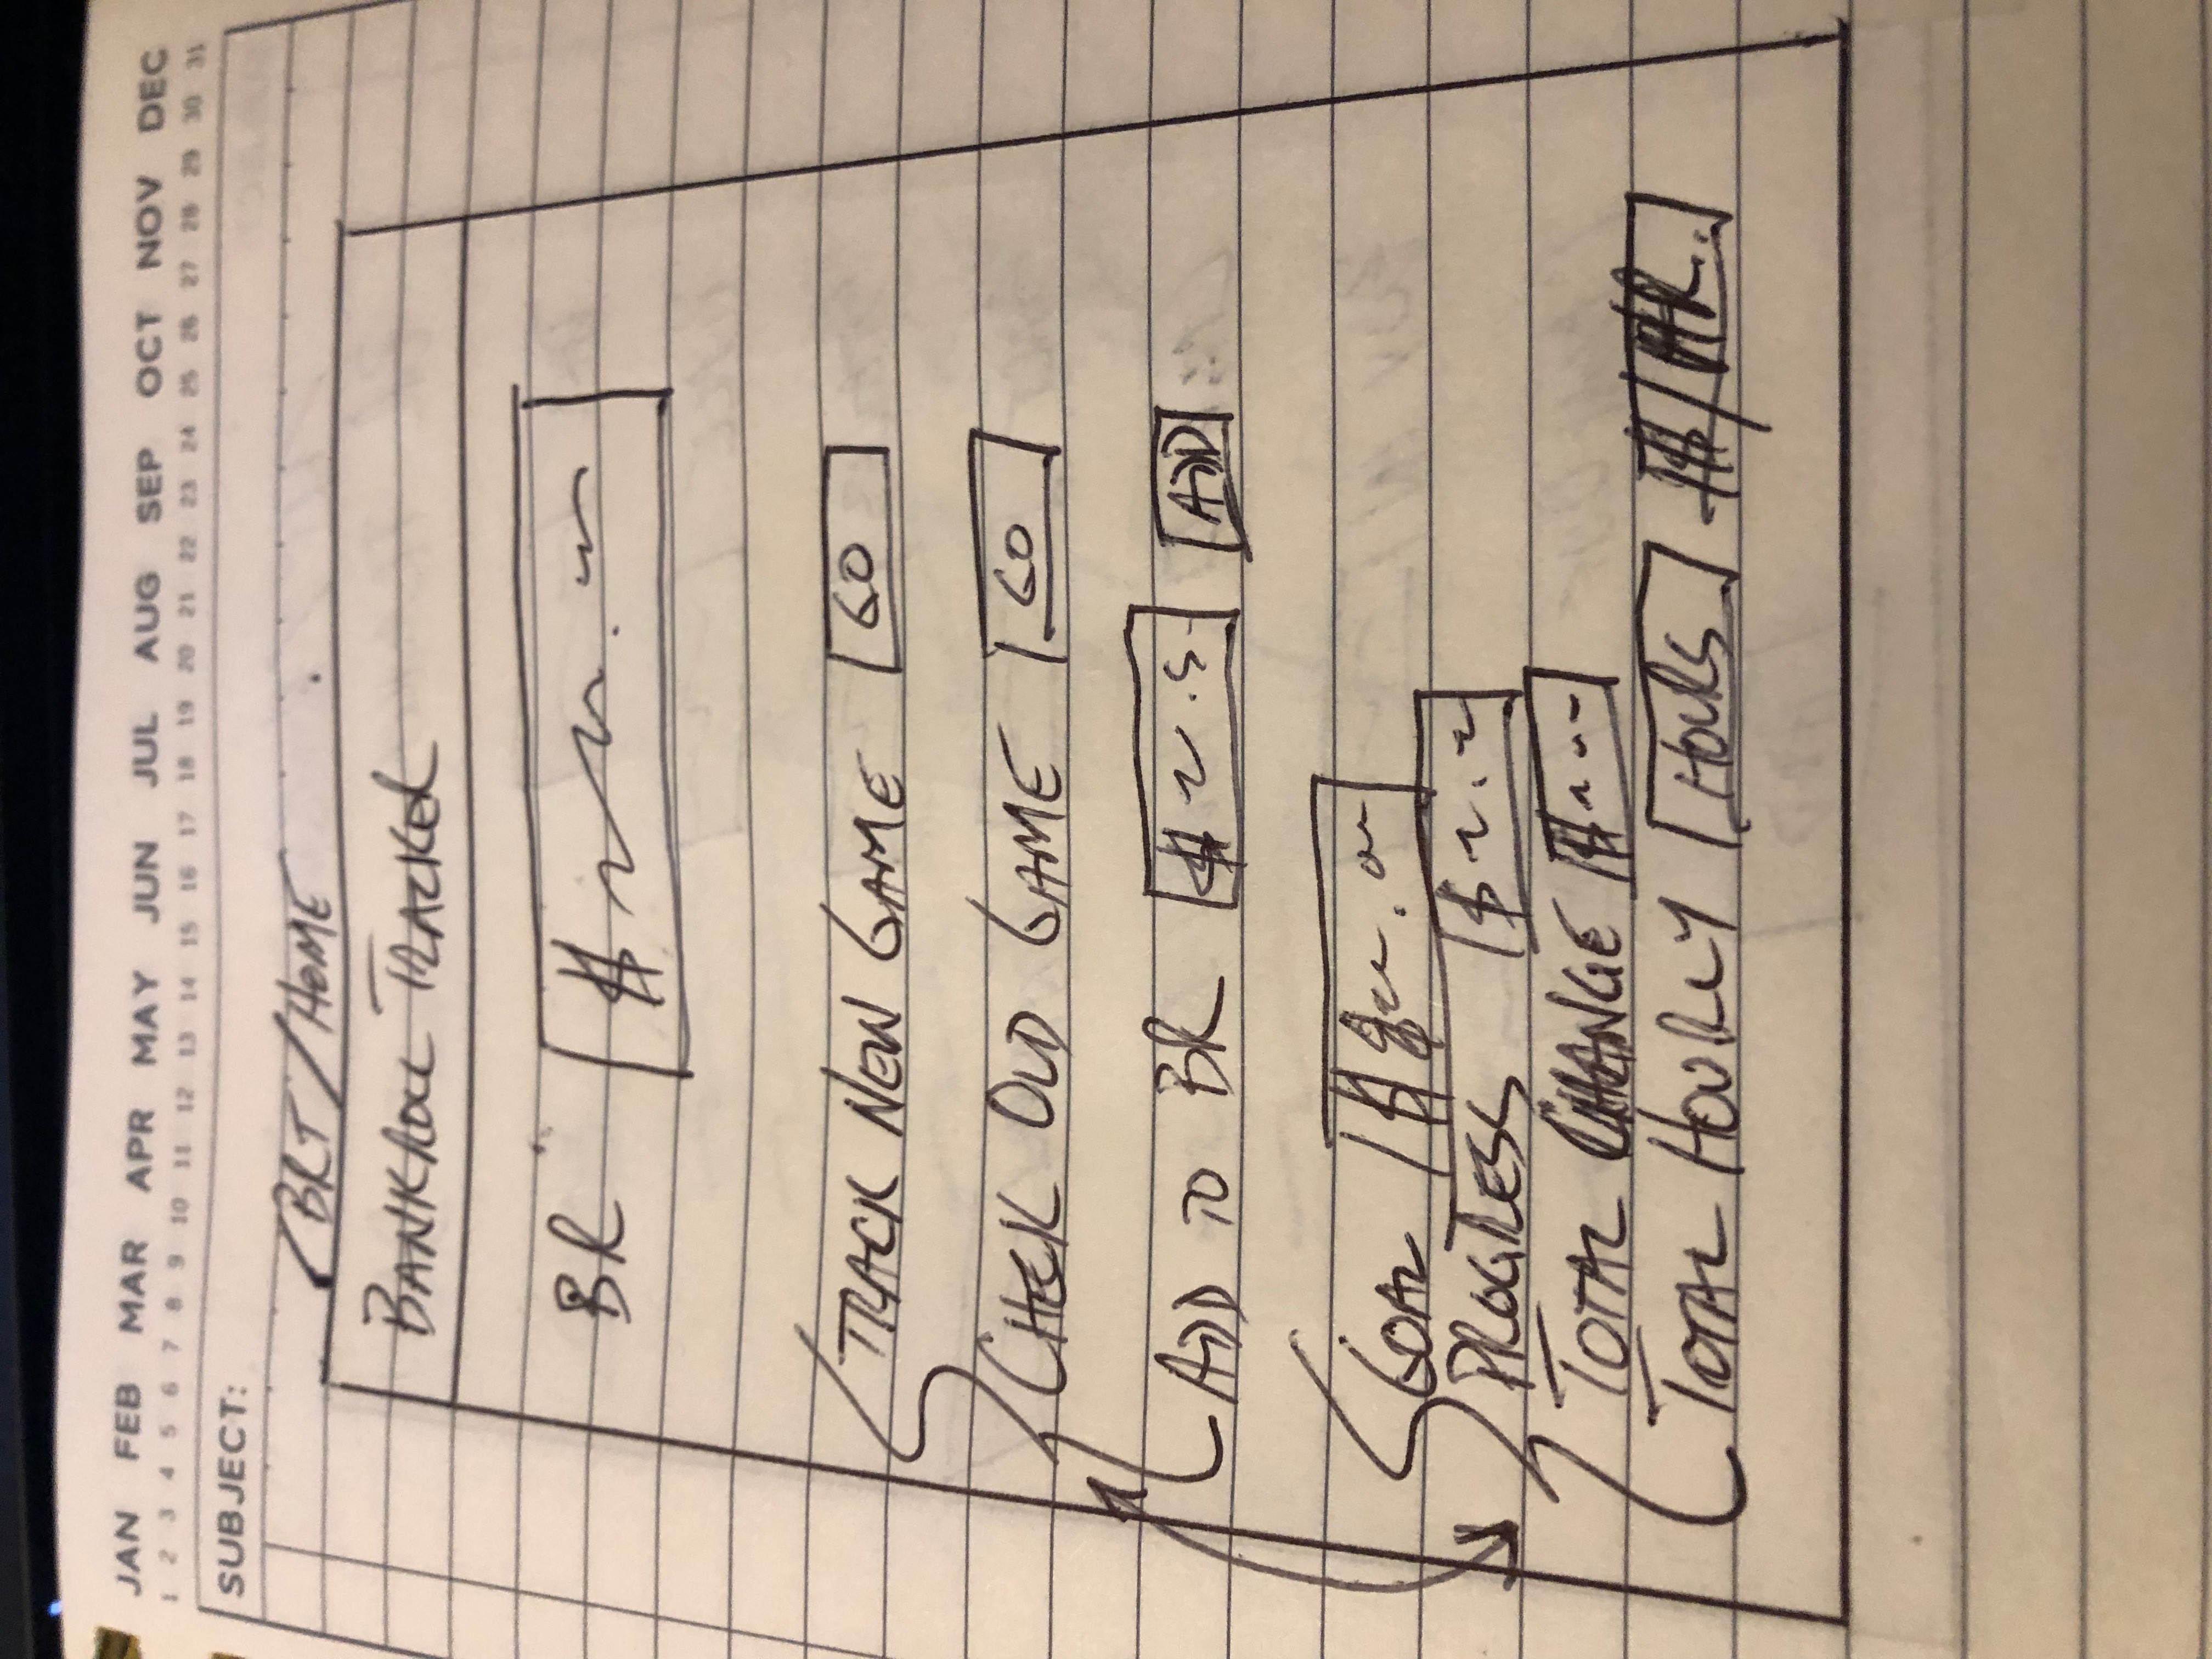 JAN FEB MAR APR MAY JUN JUL AUG SEP OCT NOV DEC
1 2 3 4 5 6 7 8 9 10 11 12 13 14 15 16 17 18 19 20 21 22 23 24 25 26 27 28 29 30 31
SUBJECT:
/BRT/HOME
BANKROLL TRACKER
BR $ .
TRACK NEW GAME GO
CHECK OLD GAME GO
ADD TO BR $ . ADD
GOAL $ .
PROGRESS $ .
TOTAL CHANGE $
TOTAL HOURLY HOURS $/HR.